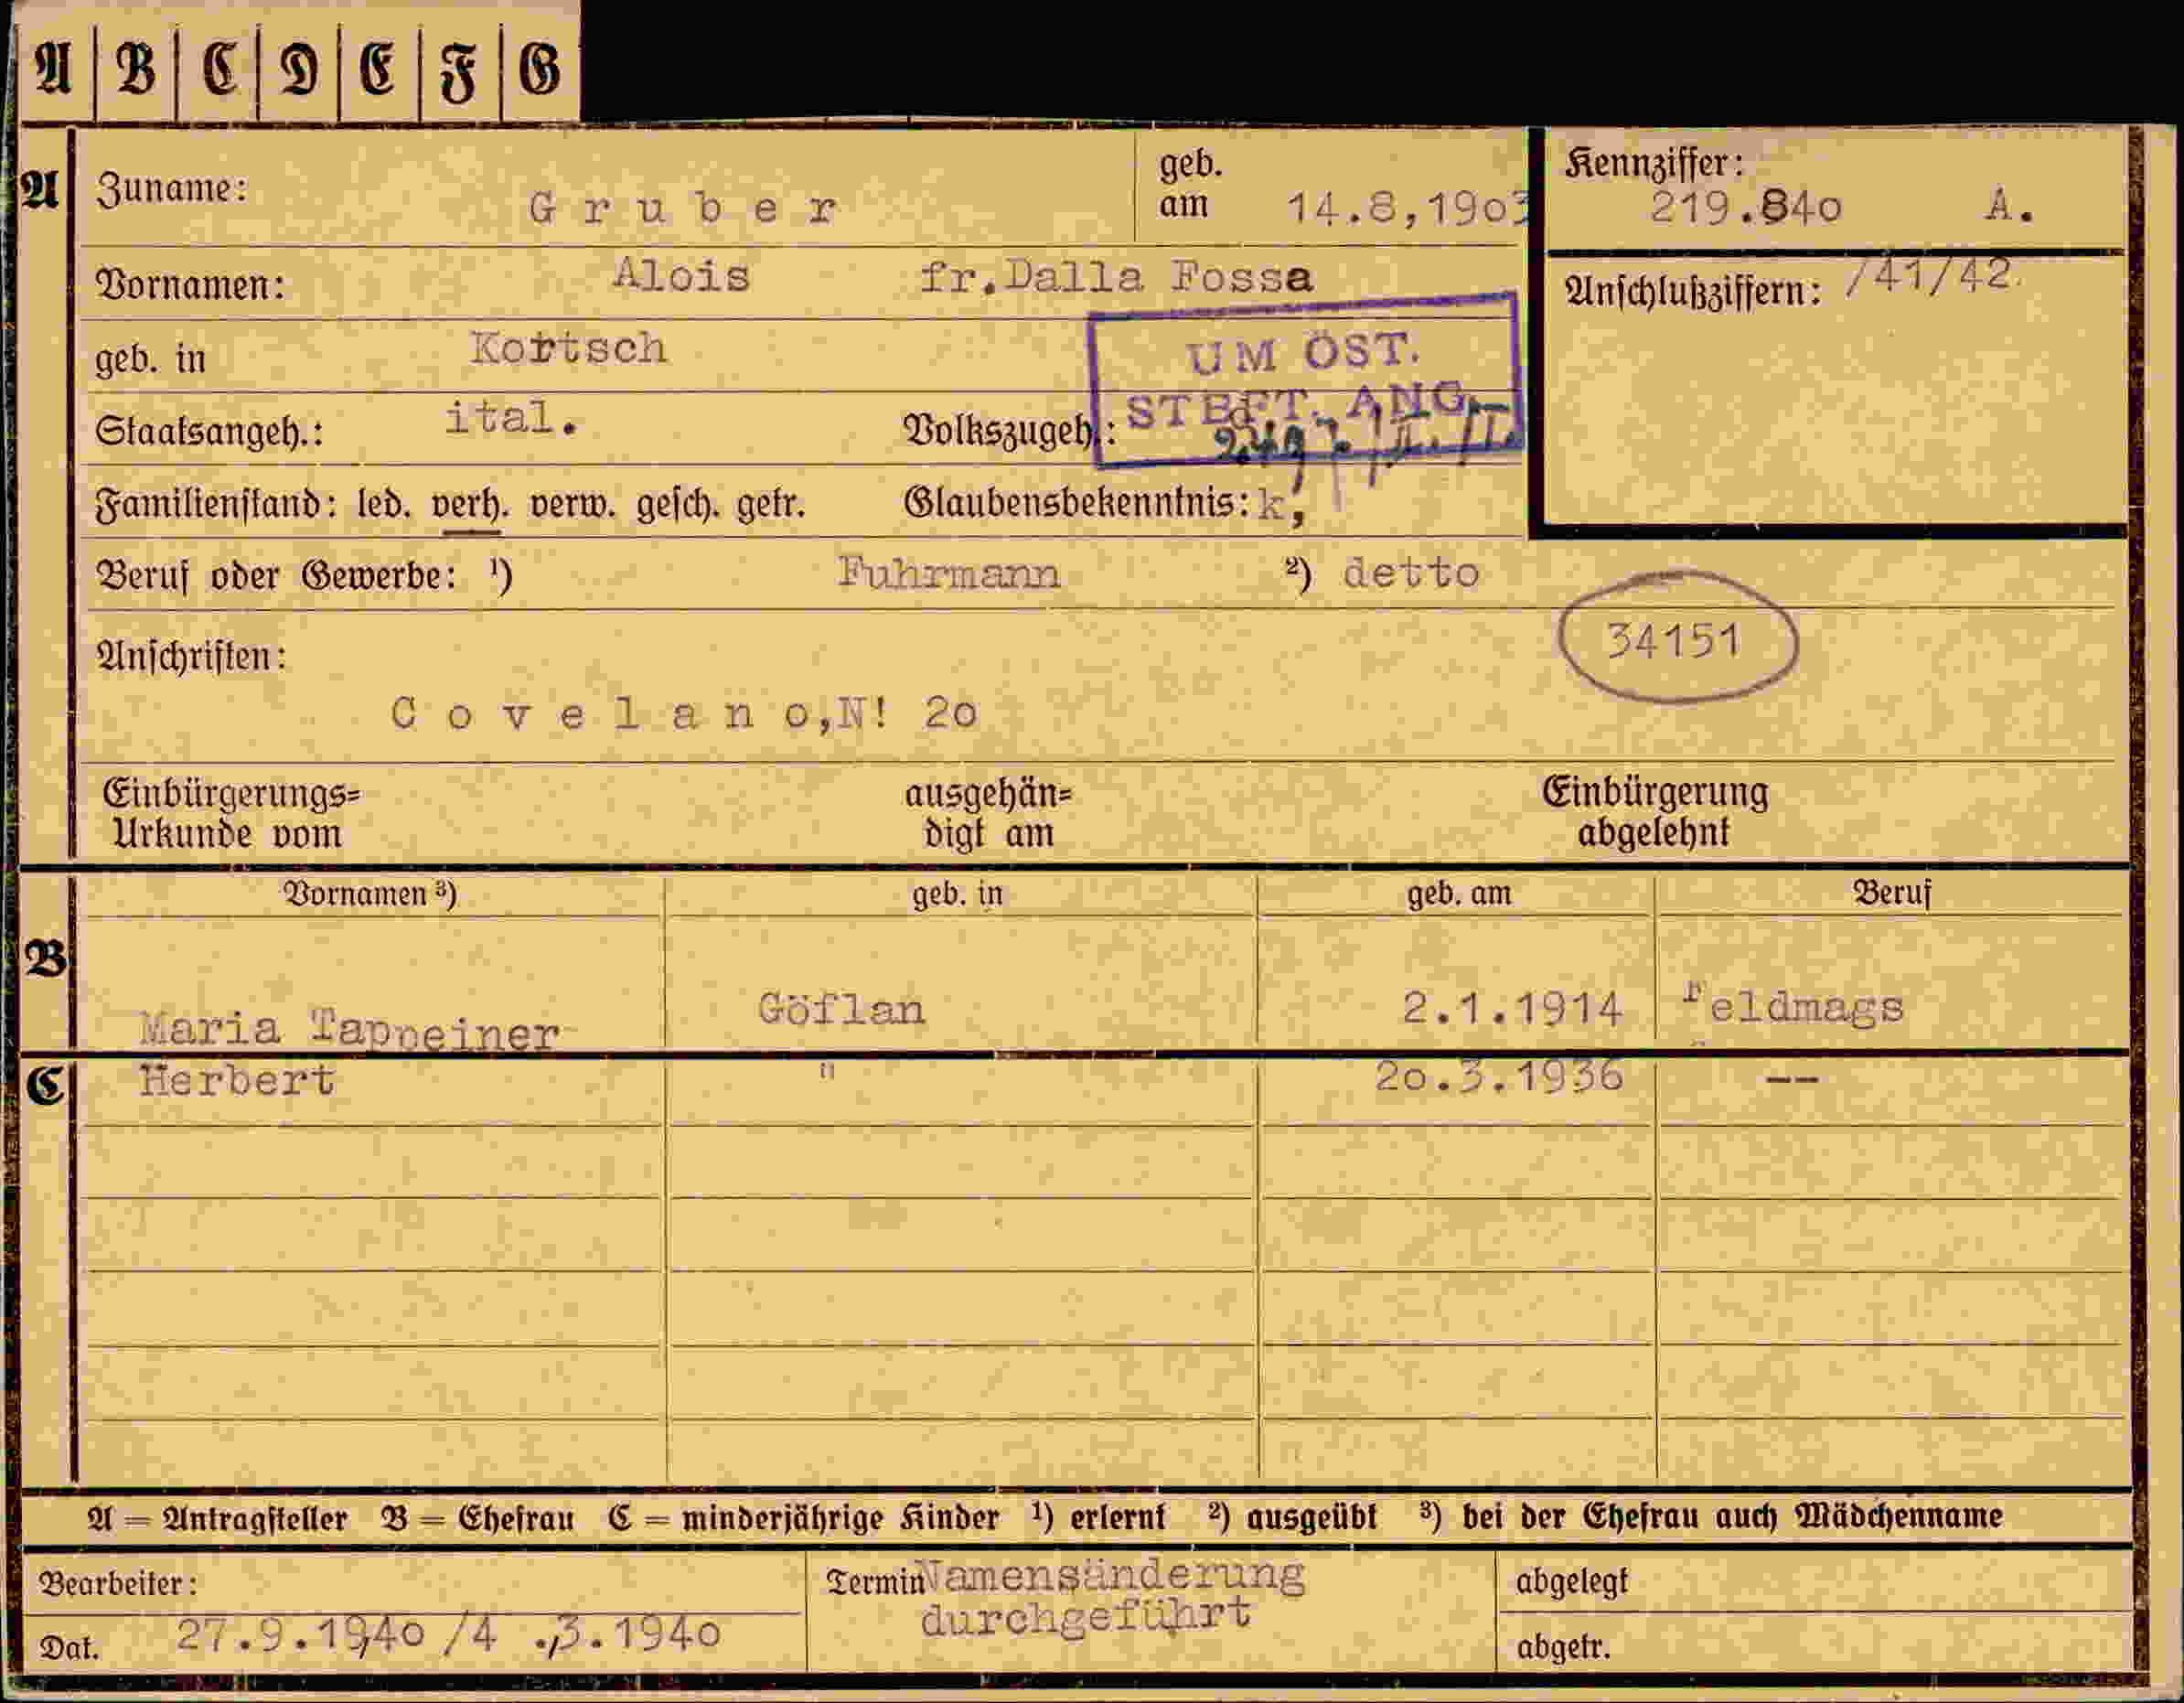 A B C D E F G
A Zuname: Gruber geb. am 14.8,1903 Kennziffer: 219.840 A.
Vornamen: Alois fr.Dalla Fossa Anschlußziffern: /41/42.
geb. in Kortsch UM ÖST.
Staatsangeh.: ital. Volkszugeh.: STBFT. ANG.
Familienstand: led. verh. verw. gesch. getr. Glaubensbekenntnis: k,
Beruf oder Gewerbe: ¹) Fuhrmann ²) detto
34151
Anschriften:
Covelano,N! 20
Einbürgerungs= Urkunde vom ausgehän= digt am Einbürgerung abgelehnt
Vornamen ³) geb. in geb. am Beruf
B Maria Tappeiner Göflan 2.1.1914 Feldmags
C Herbert " 20.3.1936 --
A = Antragsteller B = Ehefrau C = minderjährige Kinder ¹) erlernt ²) ausgeübt ³) bei der Ehefrau auch Mädchenname
Bearbeiter: Termin Namensänderung abgelegt
Dat. 27.9.1940 /4 .3.1940 durchgeführt abgetr.